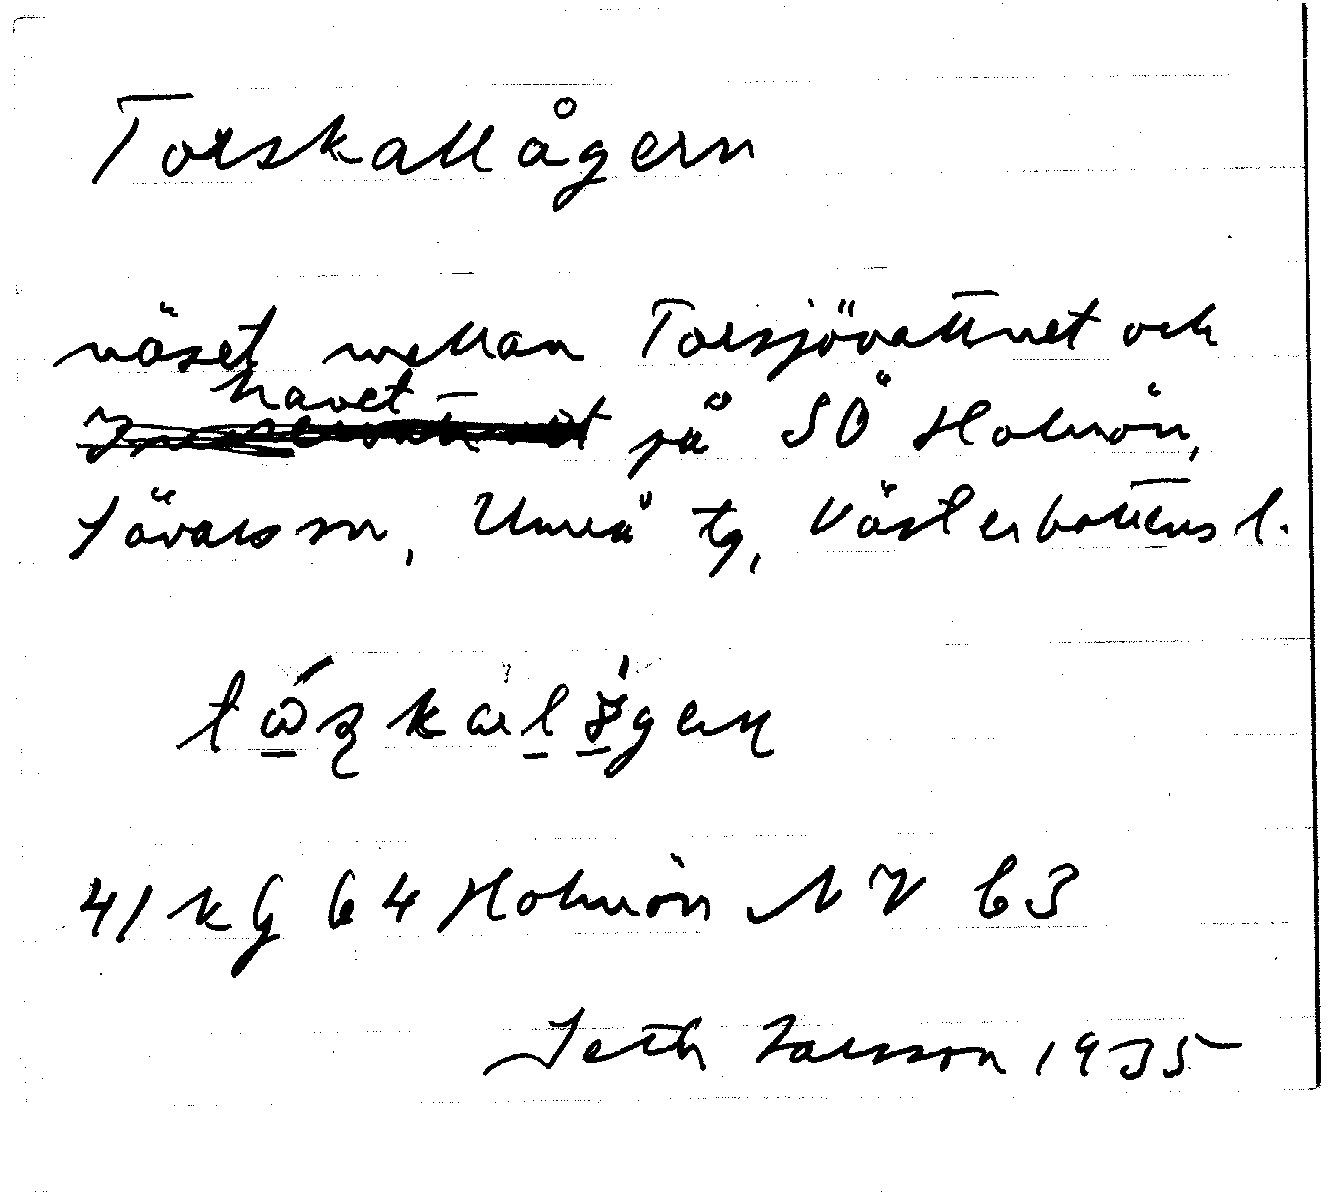 Torskallågern
näset mellan Torsjövattnet och
havet
på SÖ Holmön,
Sävars sn, Umeå tg, Västerbottens l.
41 kg 64 Holmön NV 63
Seth Larsson 1935